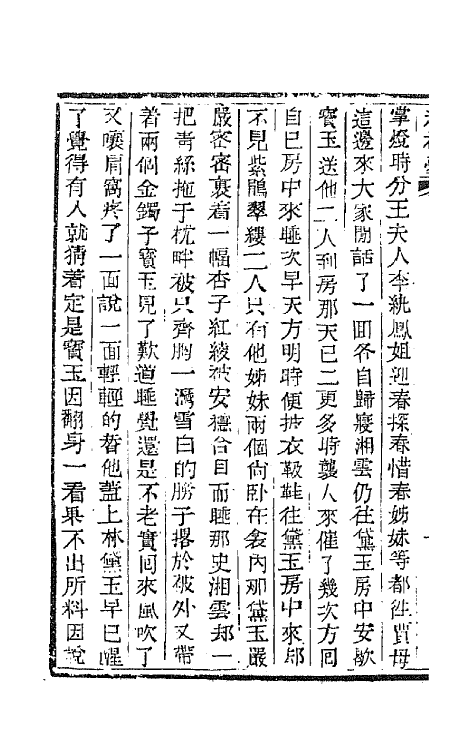 掌燈時分王夫人李紈鳳姐迎春探春惜春姊妹等都往賈母
這邊來大家閒話了一回各自歸寢湘雲仍往黛玉房中安歇
寶玉送他二人到房那天已二更多時襲人來催了幾次方回
自己房中來睡次早天方明時便披衣靸鞋往黛玉房中來却
不見紫鵑翠縷二人只有他姊妹兩個尙卧在衾內那黛玉嚴
嚴密密裹着一幅杏子紅綾被安穩合目而睡那史湘雲却一
把靑絲拖于枕畔被只齊胸一灣雪白的膀子撂於被外又帶
着兩個金鐲子寶玉見了歎道睡覺還是不老實回來風吹了
又嚷肩窩疼了一面說一面輕輕的替他蓋上林黛玉早已醒
了覺得有人就猜着定是寶玉因翻身一看果不出所料因說